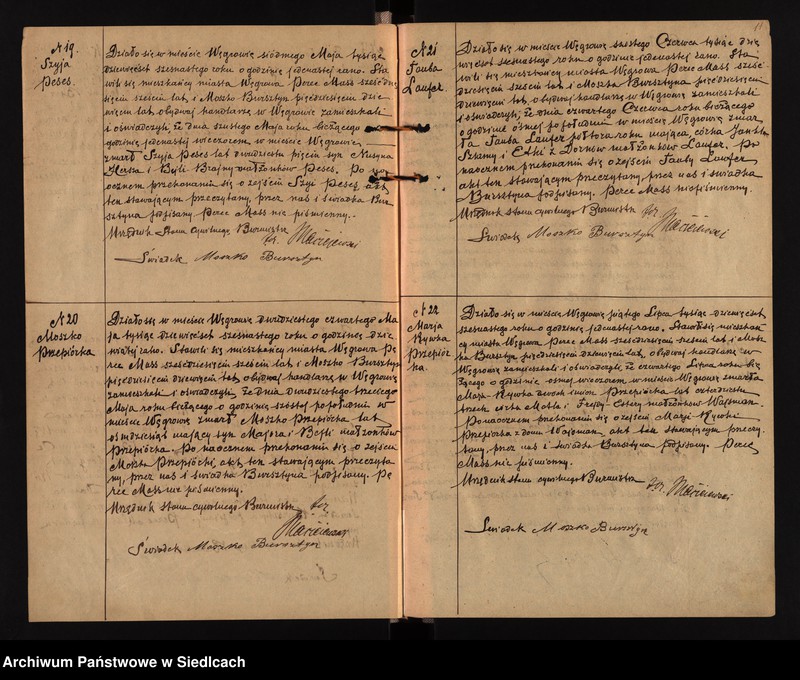 N 19.
Szyja
Peses.
Działo się w mieście Węgrowie siódmego Maja tysiąc
dziewięćset szesnastego roku o godzinie jedenastej rano. Sta
wili się mieszkańcy miasta Węgrowa Perec Mass sześćdzie
sięciu sześciu lat i Moszko Bursztyn pięćdziesięciu dzie
więciu lat, obydwaj handlarze w Węgrowie zamieszkali
i oświadczyli, że dnia szóstego Maja roku bieżącego
godzinie jedenastej wieczorem w mieście Węgrowie
zmarł Szyja Peses lat dwadzieścia pięć syn
i Bejli Brajny małżonków Peses. Po na
ocznem przekonaniu się o zejściu Szyi Peses, akt
ten stawającym przeczytany, przez nas i świadka Bur
sztyna podpisany. Perec Mass nie piśmienny.
Urzędnik Stanu cywilnego Burmistrz
Maciejewski
Świadek Moszko Bursztyn
N 20
Moszko
Przepiórka
Działo się w mieście Węgrowie dwudziestego czwartego Ma
ja tysiąc dziewięćset szesnastego roku o godzinie dzie
wiątej rano. Stawili się mieszkańcy miasta Węgrowa Pe
rec Mass sześćdziesięciu sześciu lat i Moszko Bursztyn
pięćdziesięciu dziewięciu lat, obydwaj handlarze w Węgrowie
zamieszkali i oświadczyli, że dnia dwudziestego trzeciego
Maja roku bieżącego o godzinie szóstej popołudniu w
mieście Węgrowie zmarł Moszko Przepiórka lat
osiemdziesiąt mający syn Majora i Bejli małżonków
Przepiórka. Po naocznem przekonaniu się o zejściu
Moszka Przepiórki, akt ten stawającym przeczyta
ny, przez nas i świadka Bursztyna podpisany. Pe
rec Mass nie piśmienny.
Urzędnik stanu cywilnego Burmistrz
Maciejewski
Świadek Moszko Bursztyn
N 21
Tauba
Laufer.
Działo się w mieście Węgrowie szóstego Czerwca tysiąc dzie
więćset szesnastego roku o godzinie jedenastej rano. Sta
wili się mieszkańcy miasta Węgrowa Perec Mass sześć
dziesięciu sześciu lat i Moszko Bursztyn pięćdziesięciu
dziewięciu lat, obydwaj handlarze w Węgrowie zamieszkali
i oświadczyli, że dnia czwartego Czerwca roku bieżącego
o godzinie ósmej po południu w mieście Węgrowie zmar
ła Tauba Laufer półtora roku mająca, córka Jankla
Szlamy i Etki z Dornów małżonków Laufer. Po
naocznem przekonaniu się o zejściu Tauby Laufer,
akt ten stawającym przeczytany, przez nas i świadka
Bursztyna podpisany. Perec Mass niepiśmienny.
Urzędnik stanu cywilnego Burmistrz
Maciejewski
Świadek Moszko Bursztyn
N 22
Marja
Rywka
Przepiór
ka.
Działo się w mieście Węgrowie piątego Lipca tysiąc dziewięćset
szesnastego roku o godzinie jedenastej rano. Stawili się mieszkań
cy miasta Węgrowa Perec Mass sześćdziesięciu sześciu lat i Mosz
ko Bursztyn pięćdziesięciu dziewięciu lat, obydwaj handlarze w
Węgrowie zamieszkali i oświadczyli, że czwartego Lipca roku bie
żącego o godzinie ósmej wieczorem w mieście Węgrowie zmarła
Marja Rywka dwóch imion Przepiórka lat czterdzieści
trzech córka Motka i Frejdy-Estery małżonków Wajsman.
Po naocznem przekonaniu się o zejściu Marji Rywki
Przepiórka z domu Wajsman, akt ten stawającym przeczy
tany, przez nas i świadka Bursztyna podpisany. Perec
Mass nie piśmienny.
Urzędnik stanu cywilnego Burmistrz
Maciejewski
Świadek Moszko Bursztyn
Archiwum Państwowe w Siedlcach